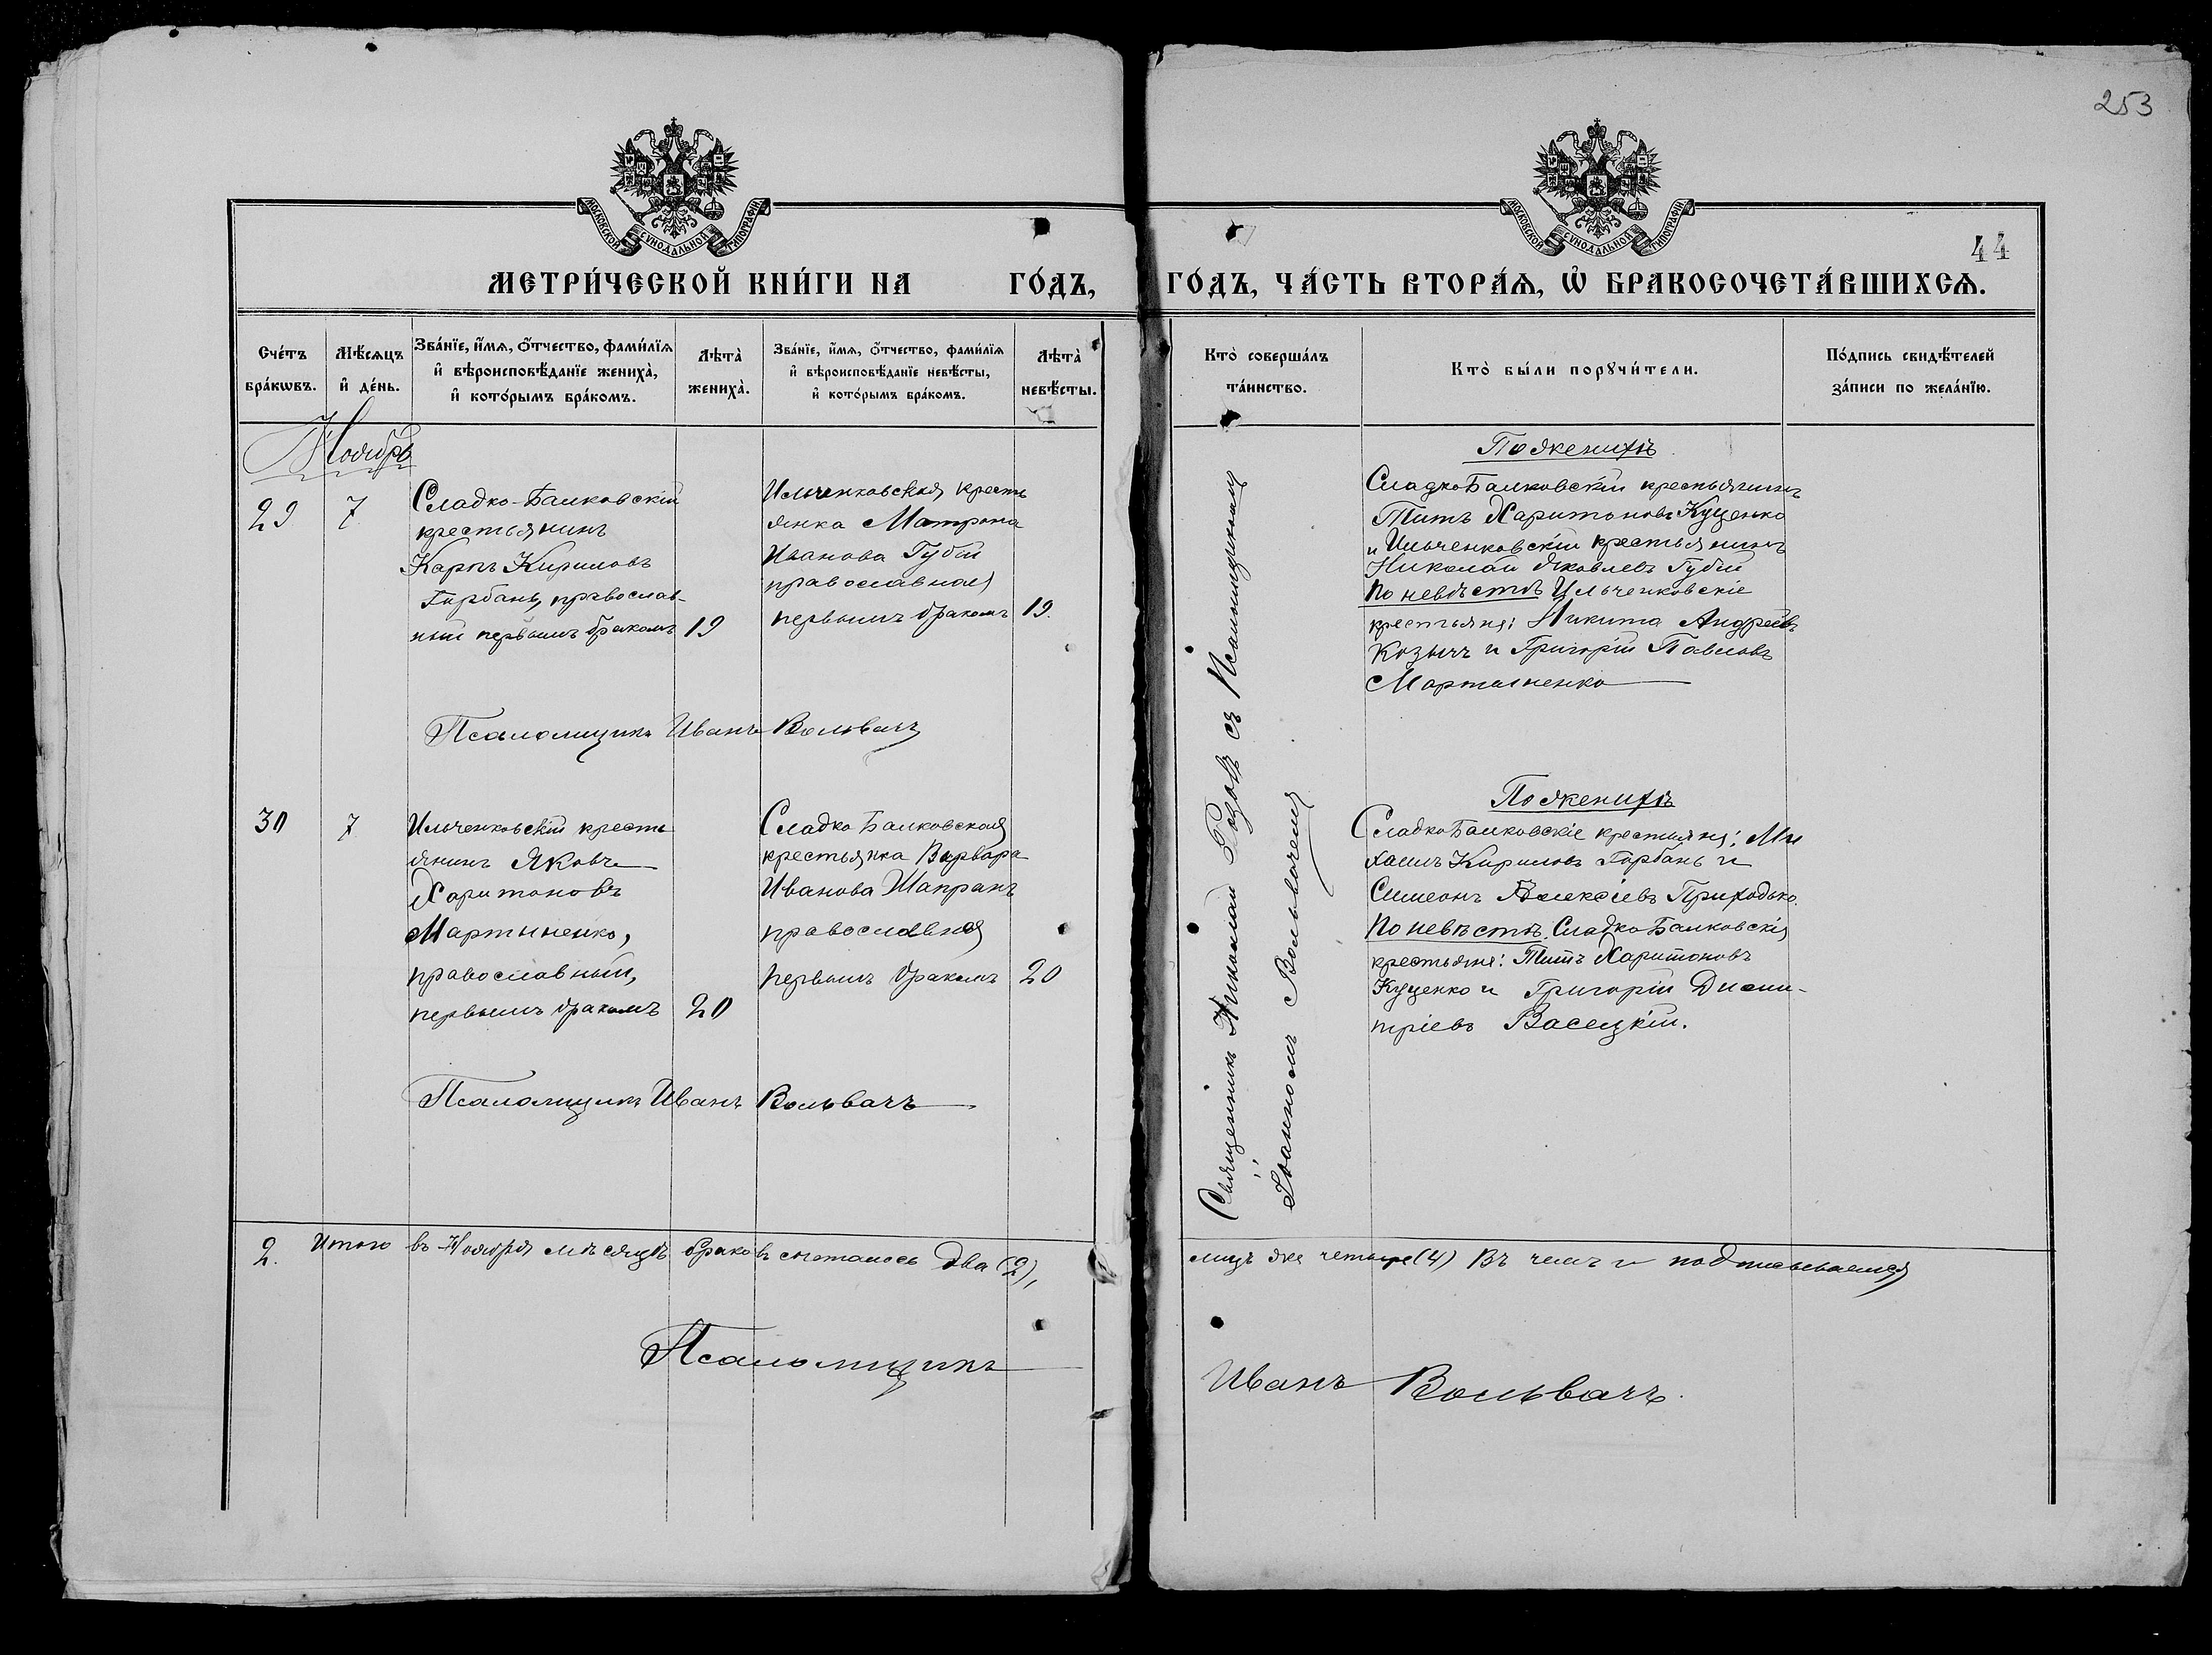 253
МОСКОВСКОЙ СѴНОДАЛЬНОЙ ТИПОГРАФІИ
МОСКОВСКОЙ СѴНОДАЛЬНОЙ ТИПОГРАФІИ
44
МЕТРИ́ЧЕСКОЙ КНИ́ГИ НА ГО́ДЪ,
ГО́ДЪ, ЧА́СТЬ ВТОРА́Ѧ, Ѡ҆ БРАКОСОЧЕТА́ВШИХСѦ.
Сче́тъ
бра́кѡвъ.
Мѣ́сѧцъ
и҆ де́нь.
Зва́нїе, и҆́мѧ, ѻ҆́тчество, фами́лїѧ
и҆ вѣроисповѣ́данїе жениха̀,
и҆ кото́рымъ бра́комъ.
Лѣта̀
жениха̀.
Зва́нїе, и҆́мѧ, ѻ҆́тчество, фами́лїѧ
и҆ вѣроисповѣ́данїе невѣ́сты,
и҆ кото́рымъ бра́комъ.
Лѣта̀
невѣ́сты.
Кто̀ соверша́лъ
та́инство.
Кто̀ бы́ли порꙋчи́тели.
По́дпись свидѣ́телей
за́писи по жела́нїю.
Ноябрь
29
7
Сладко-Балковскій
крестьянинъ
Карпъ Кириловъ
Горбань, православ-
ный первымъ бракомъ
19
Ильченковская кресть
янка Матрона
Иванова Губій
православная
первымъ бракомъ
19.
По женихѣ
Сладко Балковскій крестьянинъ
Титъ Харитоновъ Куценко
и Ильченковскій крестьянинъ
Николай Яковлевъ Губій
По невѣстѣ Ильченковскіе
крестьяне: Никита Андреевъ
Козычъ и Григорій Павловъ
Мартыненко
Псаломщикъ Иванъ Вольвачъ
30
7
Ильченковскій кресть
янинъ Яковъ
Харитоновъ
Мартыненко,
православный,
первымъ бракомъ
20
Сладко Балковская
крестьянка Варвара
Иванова Шапранъ
православная
первымъ бракомъ
20
По женихѣ
Сладко Балковскіе крестьяне: Ми
хаилъ Кириловъ Горбань и
Симеонъ Алексіевъ Приходько.
По невѣстѣ. Сладко Балковскія
крестьяне: Титъ Харитоновъ
Куценко и Григорій Дими-
тріевъ Васецкій.
Псаломщикъ Иванъ Вольвачъ
Священникъ Николай Розовъ съ Псаломщикомъ
Іоанномъ Вольвачемъ
2.
Итого въ Ноябрѣ мѣсяцѣ браковъ сочталось два (2),
лицъ же четыре (4) Въ чемъ и подписываемся
Псаломщикъ
Иванъ Вольвачъ.